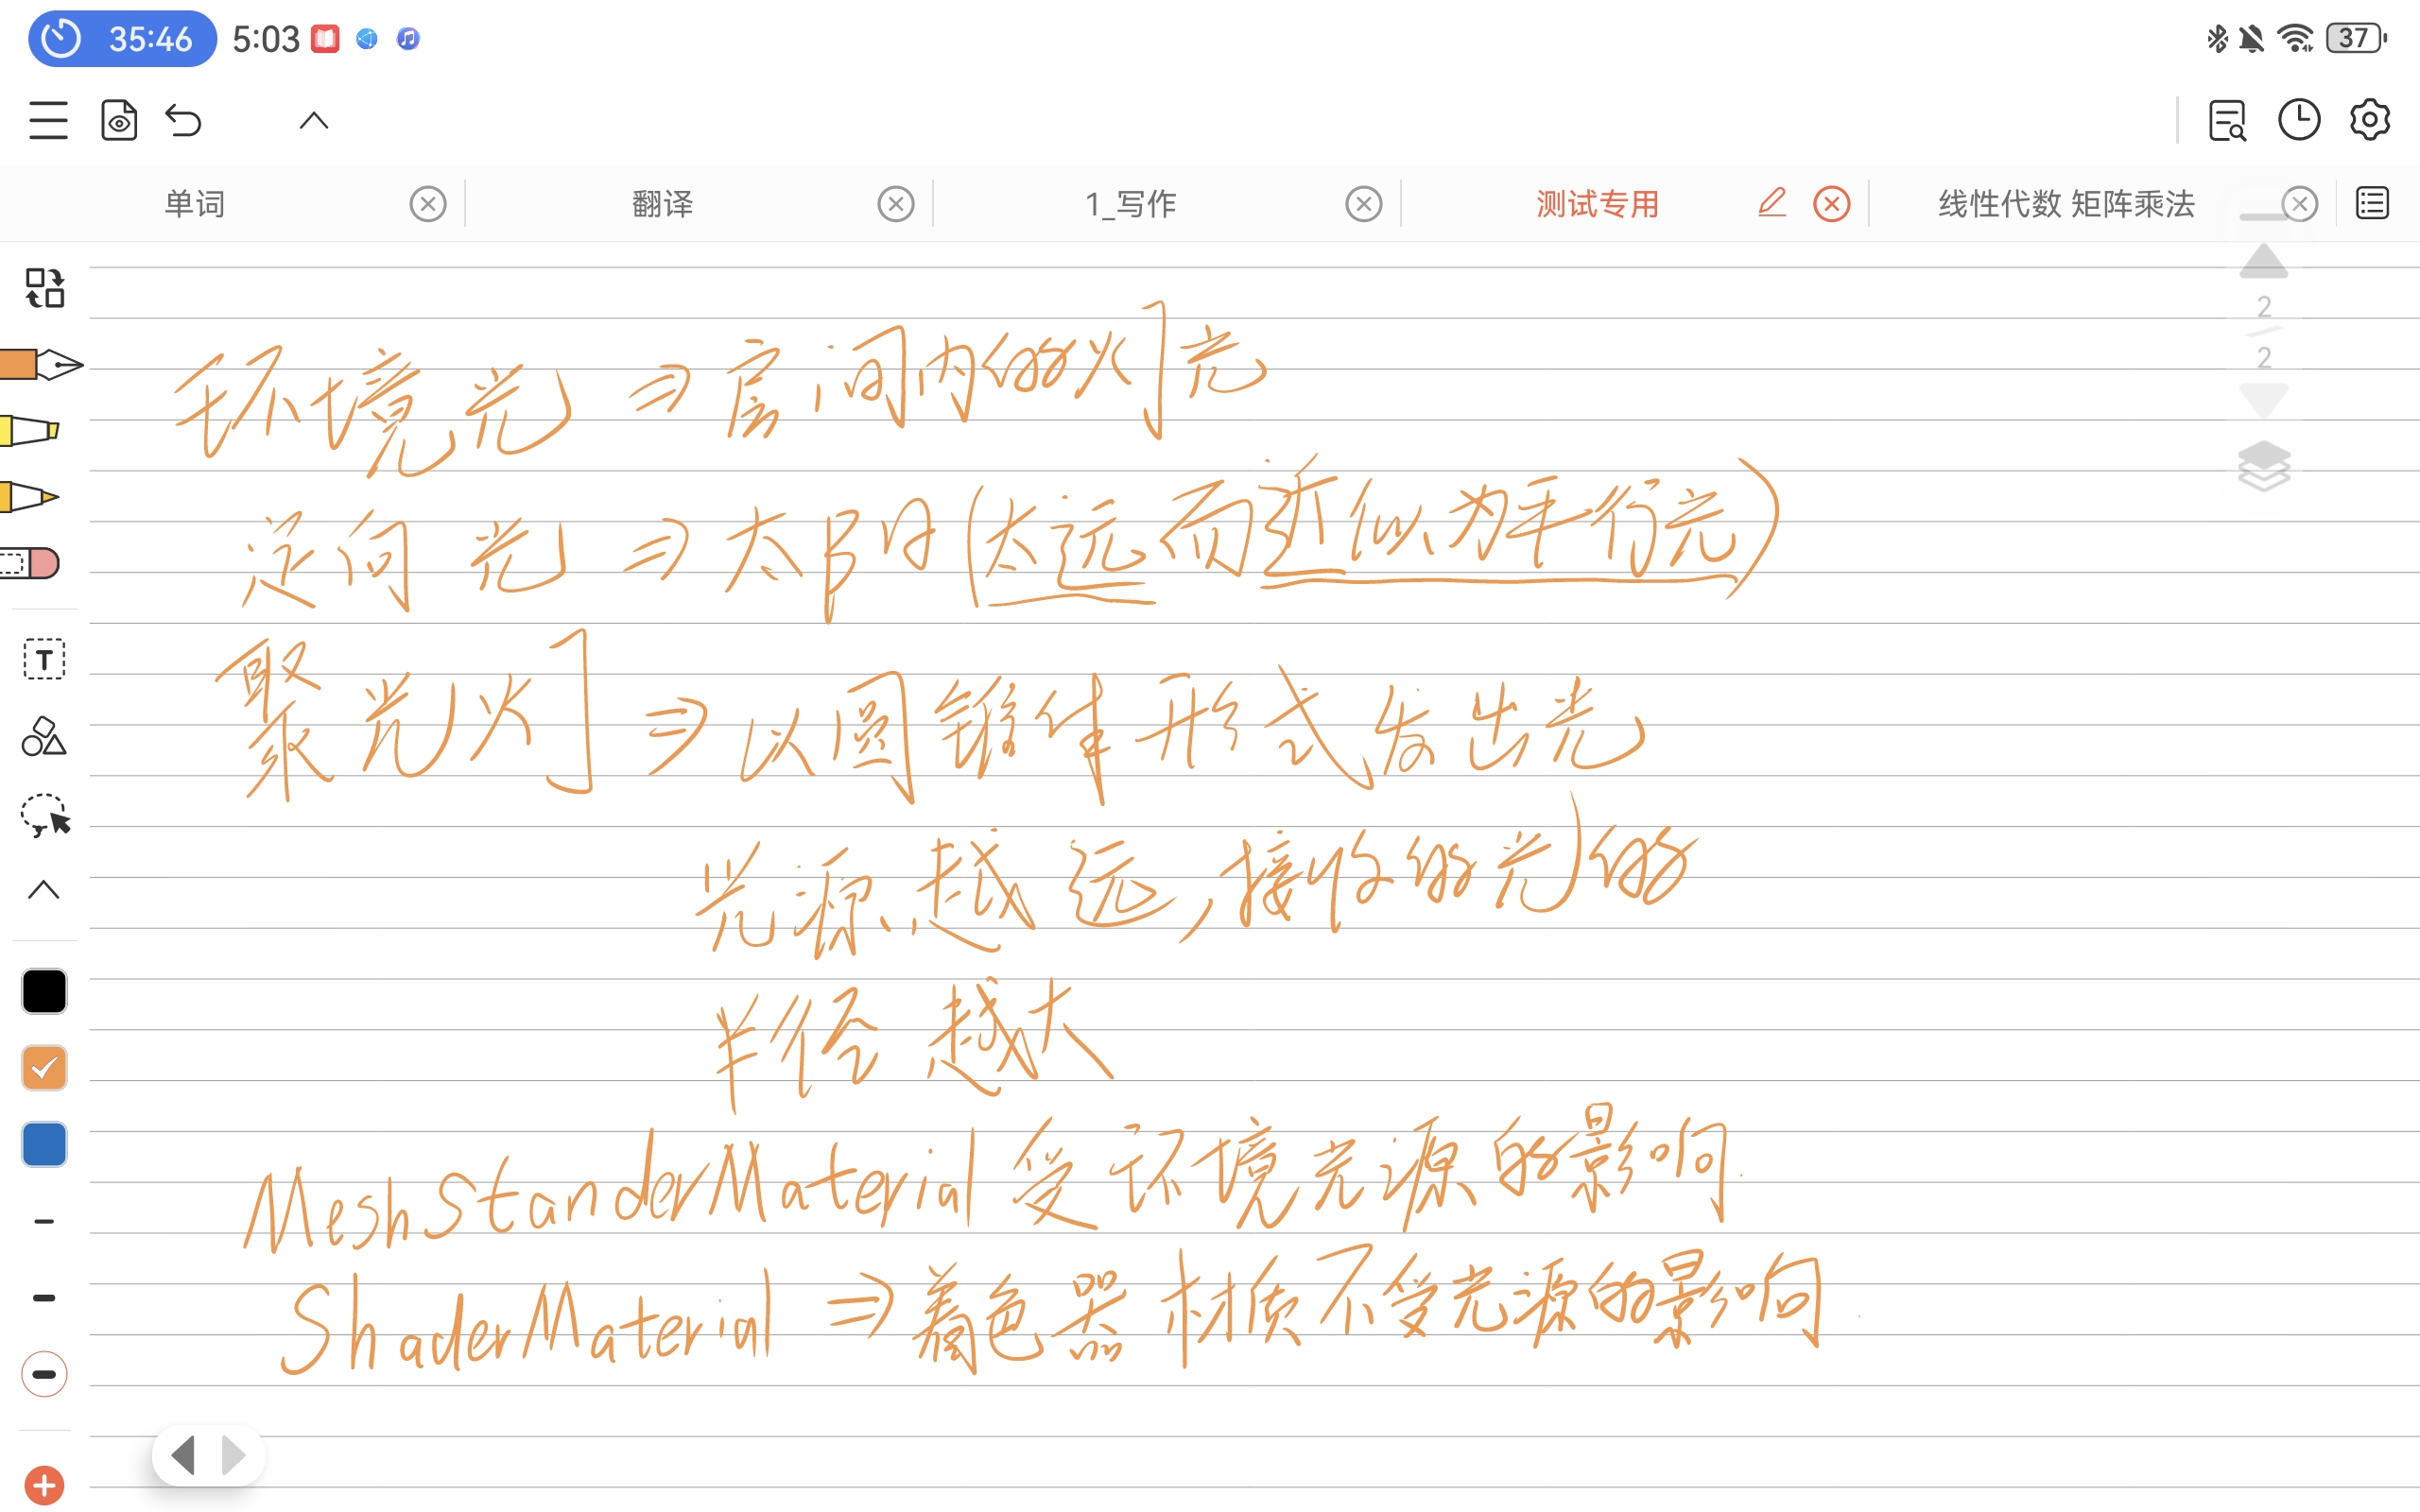 35:46 5:03 37
单词 翻译 1_写作 测试专用 线性代数 矩阵乘法
2
2
环境光 ⇒ 房间内的灯光
定向光 ⇒ 太阳(太远而近似为平行光)
聚光灯 ⇒ 以圆锥体形式发出光
光源越远,接收的光的
半径越大
MeshStanderMaterial 受环境光源的影响
ShaderMaterial ⇒ 着色器材质不受光源的影响
T